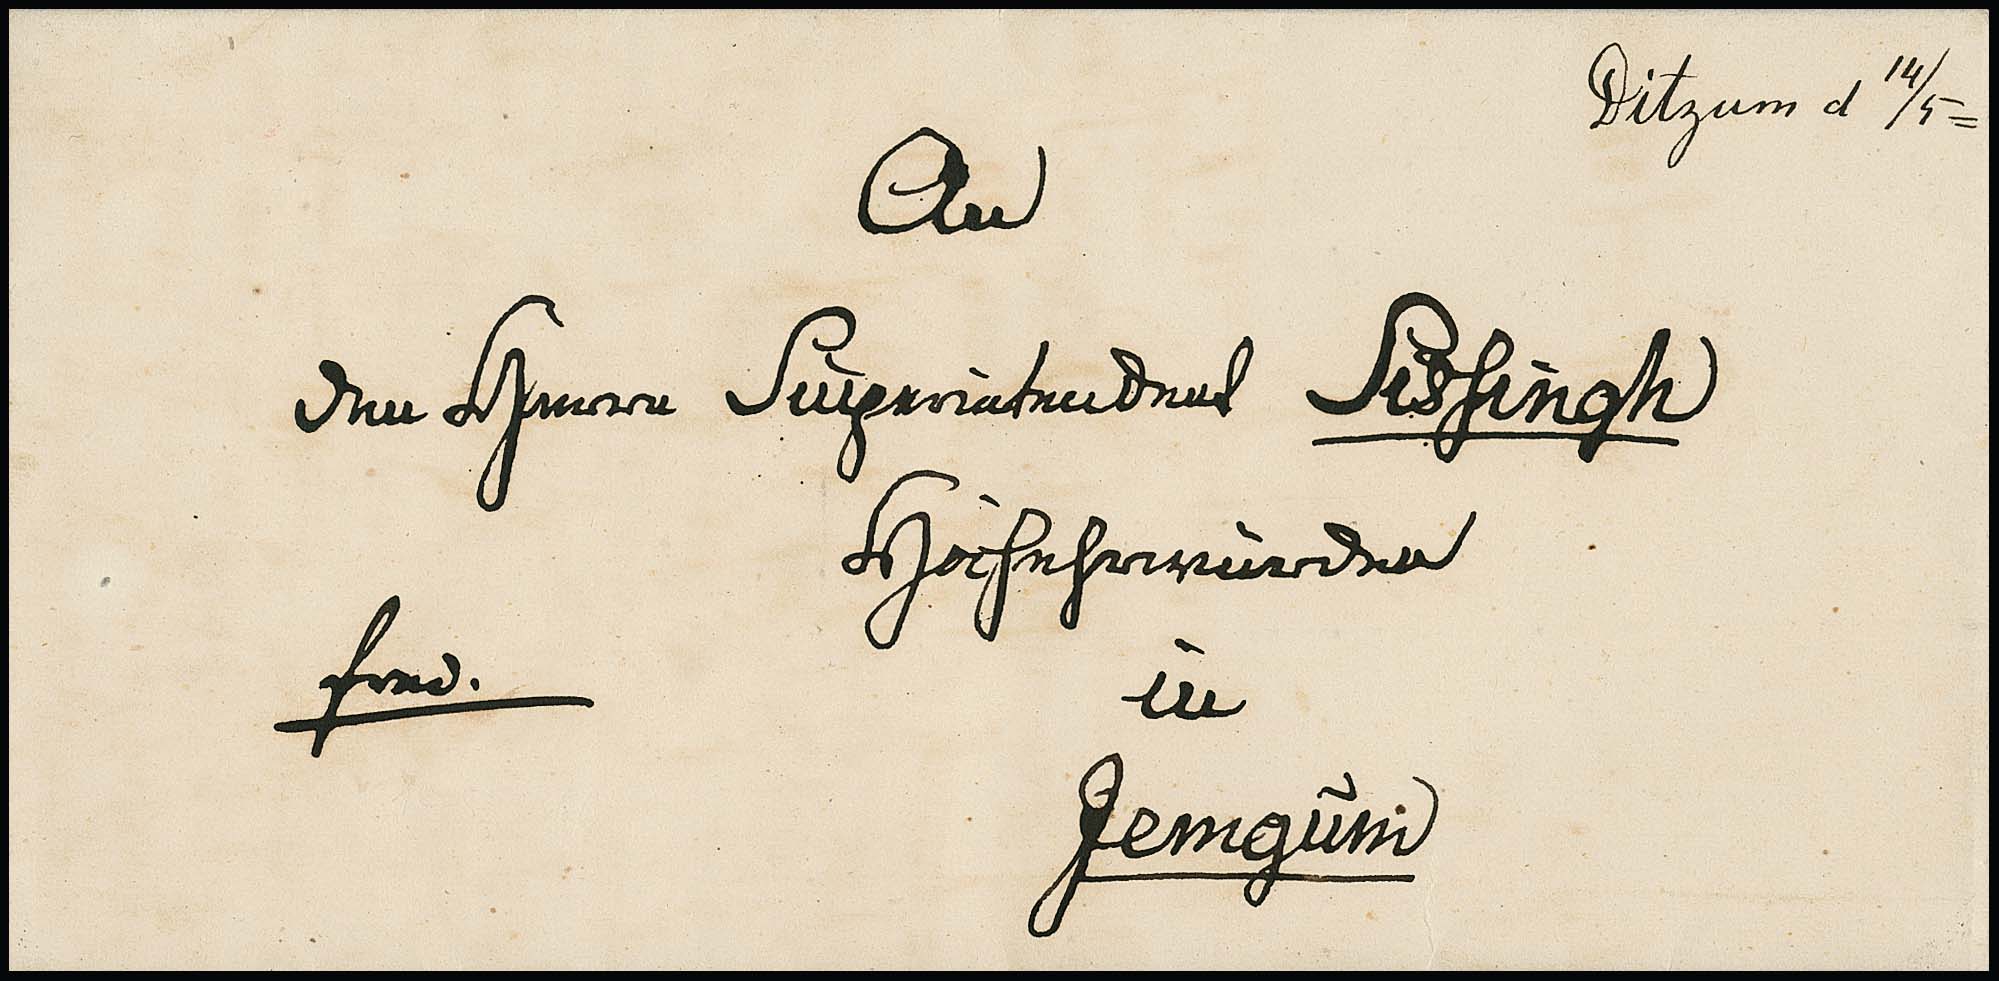 Ditzum d 14/5
An
den Herrn Superintendent Sissingh
Hochehrwürden
in
frco.
Jemgum